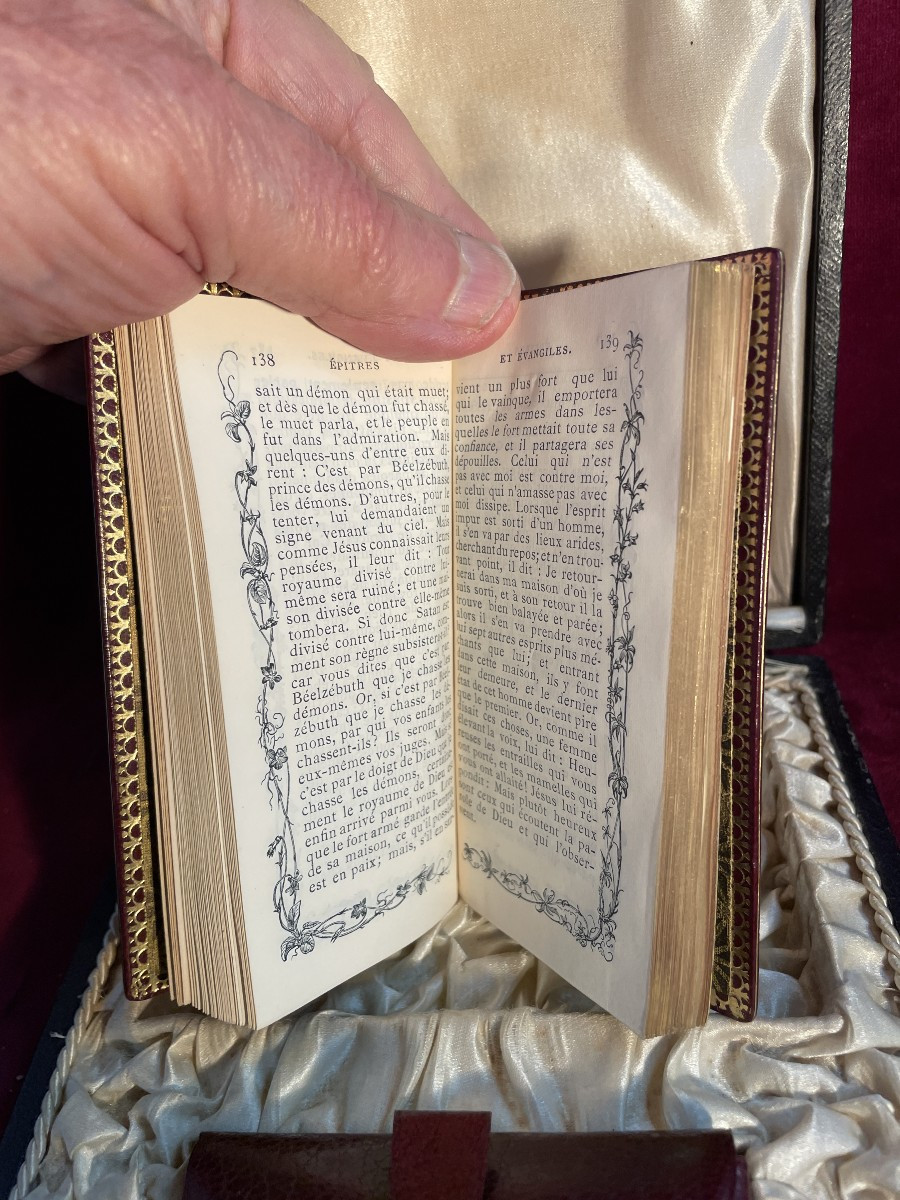 138
ÉPITRES
sait un démon qui était muet;
et dès que le démon fut chassé,
le muet parla, et le peuple en
fut dans l'admiration. Mais
quelques-uns d'entre eux di-
rent : C'est par Béelzébuth,
prince des démons, qu'il chasse
les démons. D'autres, pour le
tenter, lui demandaient un
signe venant du ciel. Mais
comme Jésus connaissait leurs
pensées, il leur dit : Tout
royaume divisé contre lui-
même sera ruiné; et une mai-
son divisée contre elle-même
tombera. Si donc Satan est
divisé contre lui-même, com-
ment son règne subsistera-t-il
car vous dites que c'est par
Béelzébuth que je chasse les
démons. Or, si c'est par Béel-
zébuth que je chasse les dé-
mons, par qui vos enfants les
chassent-ils? Ils seront donc
eux-mêmes vos juges. Mais si
c'est par le doigt de Dieu que je
chasse les démons, certaine-
ment le royaume de Dieu est
enfin arrivé parmi vous. Lors-
que le fort armé garde l'entrée
de sa maison, ce qu'il possède
est en paix; mais, s'il en sur-
ET ÉVANGILES.
139
vient un plus fort que lui
qui le vainque, il emportera
toutes les armes dans les-
quelles le fort mettait toute sa
confiance, et il partagera ses
dépouilles. Celui qui n'est
pas avec moi est contre moi,
et celui qui n'amasse pas avec
moi dissipe. Lorsque l'esprit
impur est sorti d'un homme,
il s'en va par des lieux arides,
cherchant du repos; et n'en trou-
vant point, il dit : Je retour-
nerai dans ma maison d'où je
suis sorti, et à son retour il la
trouve bien balayée et parée;
alors il s'en va prendre avec
lui sept autres esprits plus mé-
chants que lui; et entrant
dans cette maison, ils y font
leur demeure, et le dernier
état de cet homme devient pire
que le premier. Or, comme il
disait ces choses, une femme
élevant la voix, lui dit : Heu-
reuses les entrailles qui vous
ont porté, et les mamelles qui
vous ont allaité! Jésus lui ré-
pondit : Mais plutôt heureux
sont ceux qui écoutent la pa-
role de Dieu et qui l'obser-
vent.